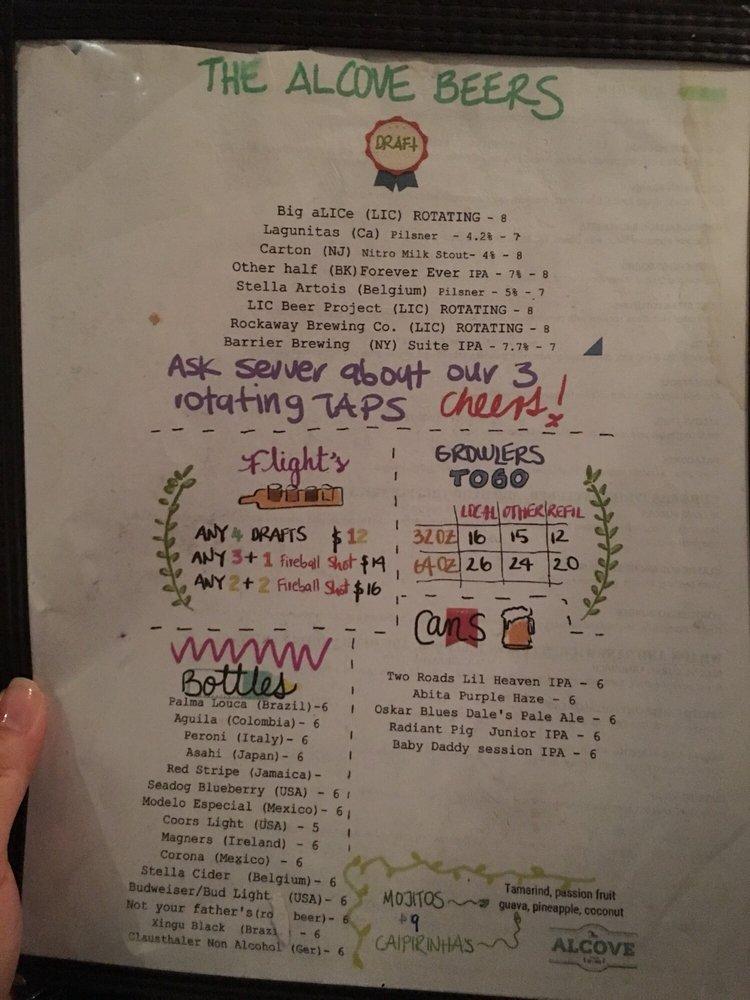 THE ALCOVE BEERS
DRAFt
Big aLICe (LIC) ROTATING - 8
Lagunitas (Ca) Pilsner - 4.2% - 7
Carton (NJ) Nitro Milk Stout- 4% - 8
Other half (BK)Forever Ever IPA - 7% - 8
Stella Artois (Belgium) Pilsner - 5% - 7
LIC Beer Project (LIC) ROTATING - 8
Rockaway Brewing Co. (LIC) ROTATING - 8
Barrier Brewing (NY) Suite IPA - 7.7% - 7
Ask server about our 3
rotating TAPS Cheers!
Flight's
ANY 4 DRAFTS $12
ANY 3+1 Fireball Shot $14
ANY 2+2 Fireball Shot $16
GROWLERS
TOGO
LOCAL OTHER REFIL
32OZ 16 15 12
64OZ 26 24 20
Cans
Two Roads Lil Heaven IPA - 6
Abita Purple Haze - 6
Oskar Blues Dale's Pale Ale - 6
Radiant Pig Junior IPA - 6
Baby Daddy session IPA - 6
Bottles
Palma Louca (Brazil)-6
Aguila (Colombia)- 6
Peroni (Italy)- 6
Asahi (Japan)- 6
Red Stripe (Jamaica)-
Seadog Blueberry (USA) - 6
Modelo Especial (Mexico)- 6
Coors Light (USA) - 5
Magners (Ireland) - 6
Corona (Mexico) - 6
Stella Cider (Belgium)- 6
Budweiser/Bud Light (USA)- 6
Not your father's(ro beer)- 6
Xingu Black (Brazi - 6
Clausthaler Non Alcohol (Ger)- 6
MOJITOS
$9
CAIPIRINHA'S
Tamarind, passion fruit
guava, pineapple, coconut
The
ALCOVE